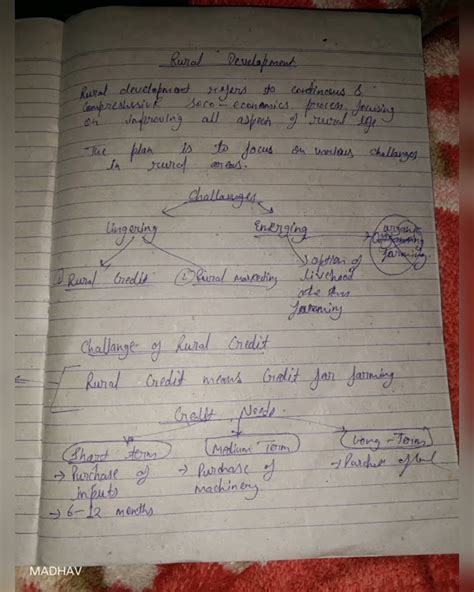 Rural Development
Rural development refers to continous &
compressive soco-economics process, focusing
on improving all aspects of rural life
The plan is to focus on various challanges
in rural areas.
Challanges
Lingering Emerging
→ organic
farming
① Rural Credit ② Rural marketing
→ option of
livehood
other than
farming
Challange of Rural Credit
Rural Credit means Credit for farming
Credit Needs
Short term Medium Term Long-Term
→ Purchase of → Purchase of → Purchase of
inputs machinery
→ 6-12 months
MADHAV